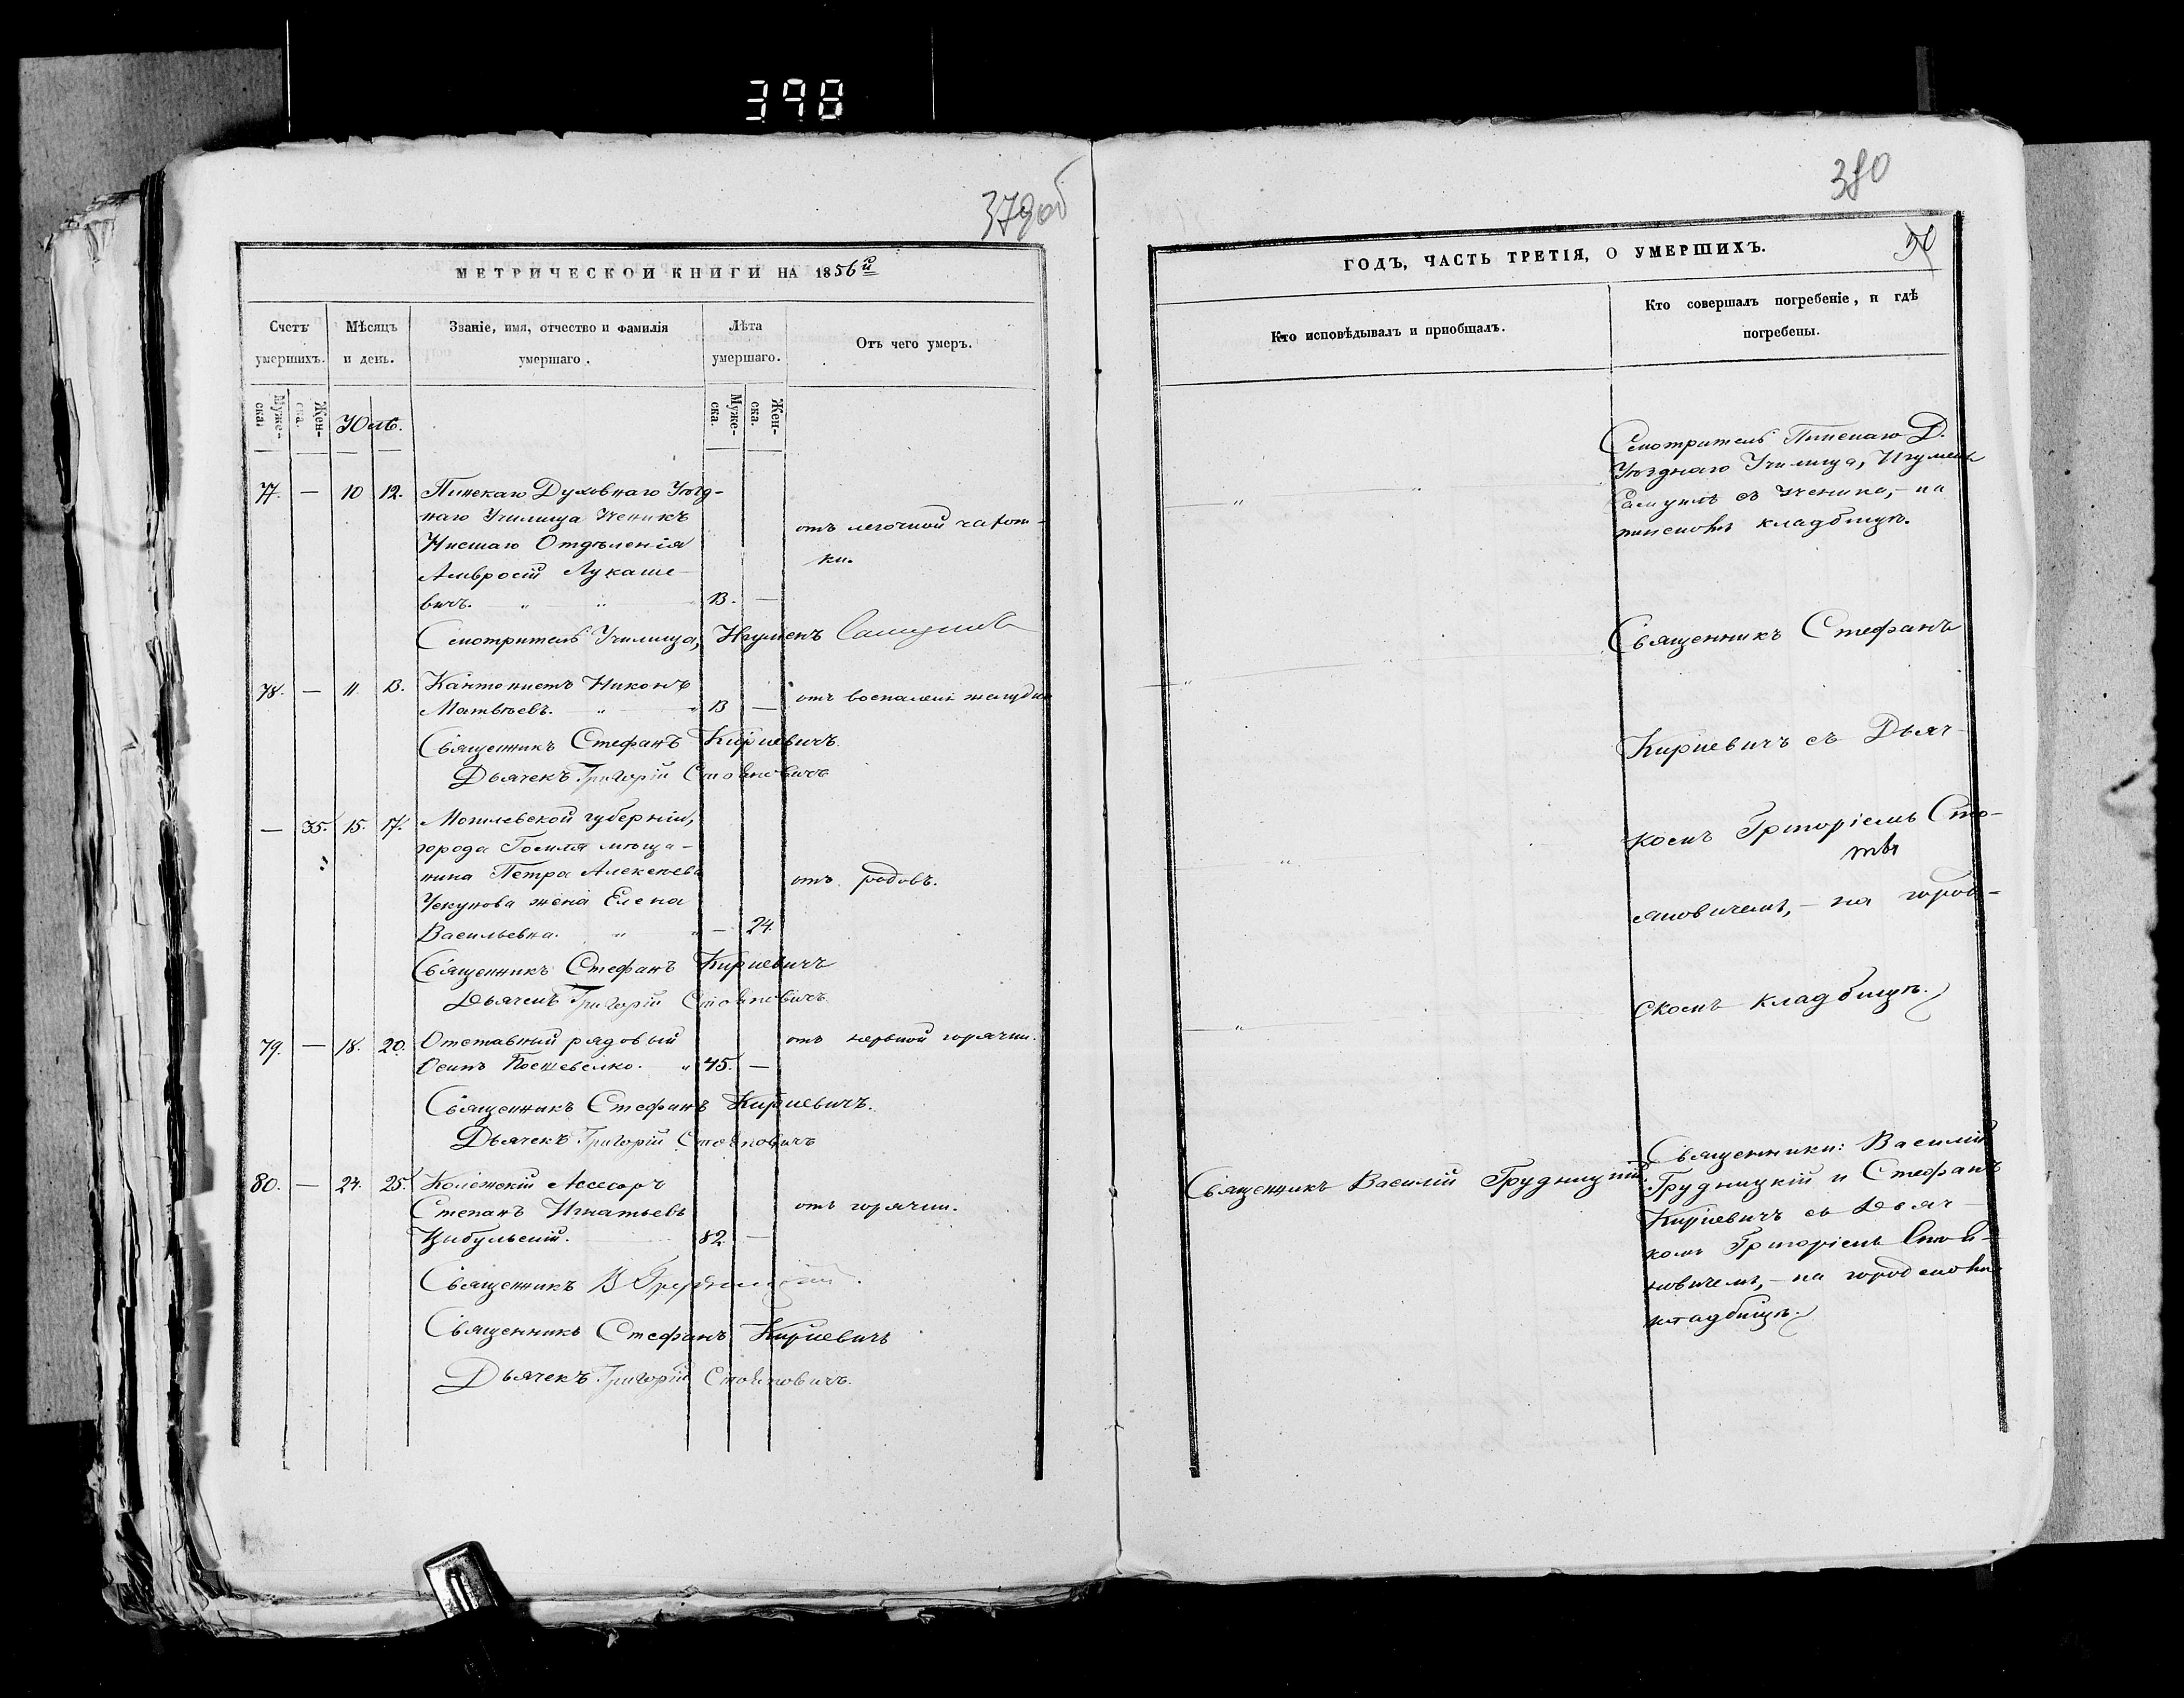 398
379об
МЕТРИЧЕСКОЙ КНИГИ НА 1856й
Счетъ умершихъ.
Мѣсяцъ и день.
Званіе, имя, отчество и фамилія умершаго.
Лѣта умершаго.
Отъ чего умеръ.
Муже-ска.
Жен-ска.
Юль.
Муже-ска.
Жен-ска.
77. — 10 12. Пинскаго Духовнаго Уѣзд-
наго Училища Ученикъ
Нисшаго Отдѣленія
Амвросій Лукаше-
вичъ. " " 13. —
отъ легочной чахот-
ки.
Смотритель Училища, Игуменъ
78. — 11. 13. Кантонистъ Никонъ
Матвѣевъ. " " 13 —
отъ воспаленія желудка
Священникъ Стефанъ Киріевичъ.
Дьячекъ Григорій Стояновичъ
— 35. 15. 17. Могилевской губерніи,
города Гомля мѣща-
нина Петра Алексѣева
жена Елена
Васильевна. " " — 24.
отъ родовъ.
Священникъ Стефанъ Киріевичъ
Дьячекъ Григорій Стояновичъ
79. — 18. 20. Отставный рядовый
Осипъ " 45. —
отъ нервной горячки.
Священникъ Стефанъ Киріевичъ.
Дьячекъ Григорій Стояновичъ
80. — 24. 25. Колежскій Ассесоръ
Степанъ Игнатьевъ
Цибульскій. 82. —
отъ горячки.
Священникъ В Грудницкій.
Священникъ Стефанъ Киріевичъ
Дьячекъ Григорій Стояновичъ.
380
ГОДЪ, ЧАСТЬ ТРЕТІЯ, О УМЕРШИХЪ.
Кто исповѣдывалъ и пріобщалъ.
Кто совершалъ погребеніе, и гдѣ
погребены.
Смотритель Пинскаго Д.
Уѣзднаго Училища, Игуменъ
съ ученика, — на
пинскомъ кладбищѣ.
Священникъ Стефанъ
Киріевичъ съ Дьяч-
комъ Григоріемъ Сто-
яновичемъ, — на город-
скомъ кладбищѣ.
Священникъ Василій Грудницкій.
Священники: Василій
Грудницкій и Стефанъ
Киріевичъ съ Дьяч-
комъ Григоріемъ Стоя-
новичемъ, — на городскомъ
кладбищѣ.